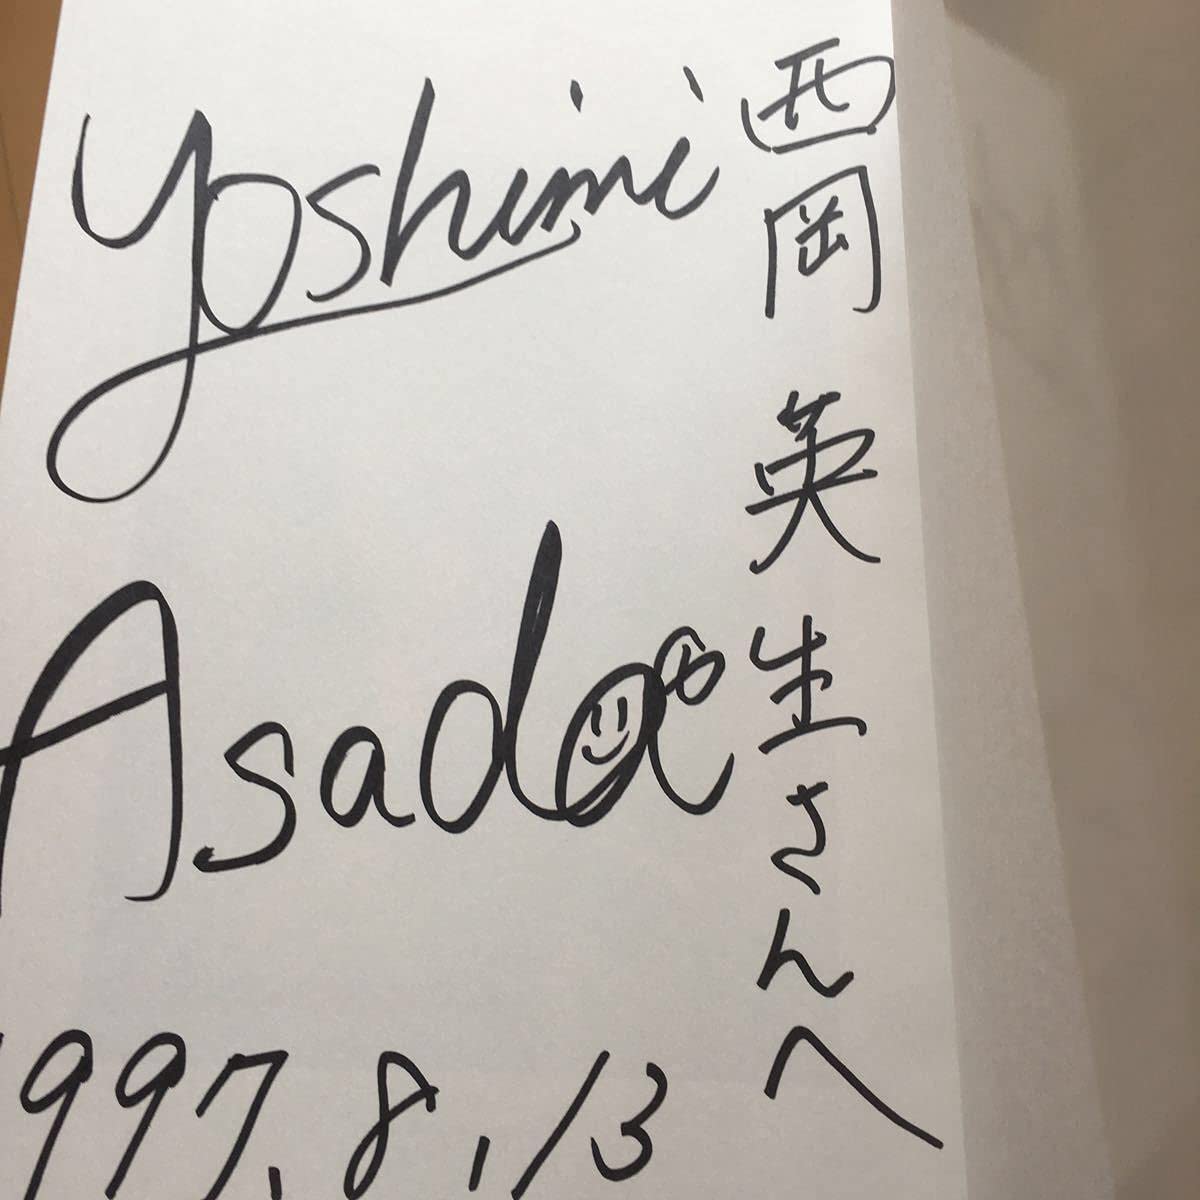 西岡英生さんへ
Yoshimi
Asada
1997.8.13